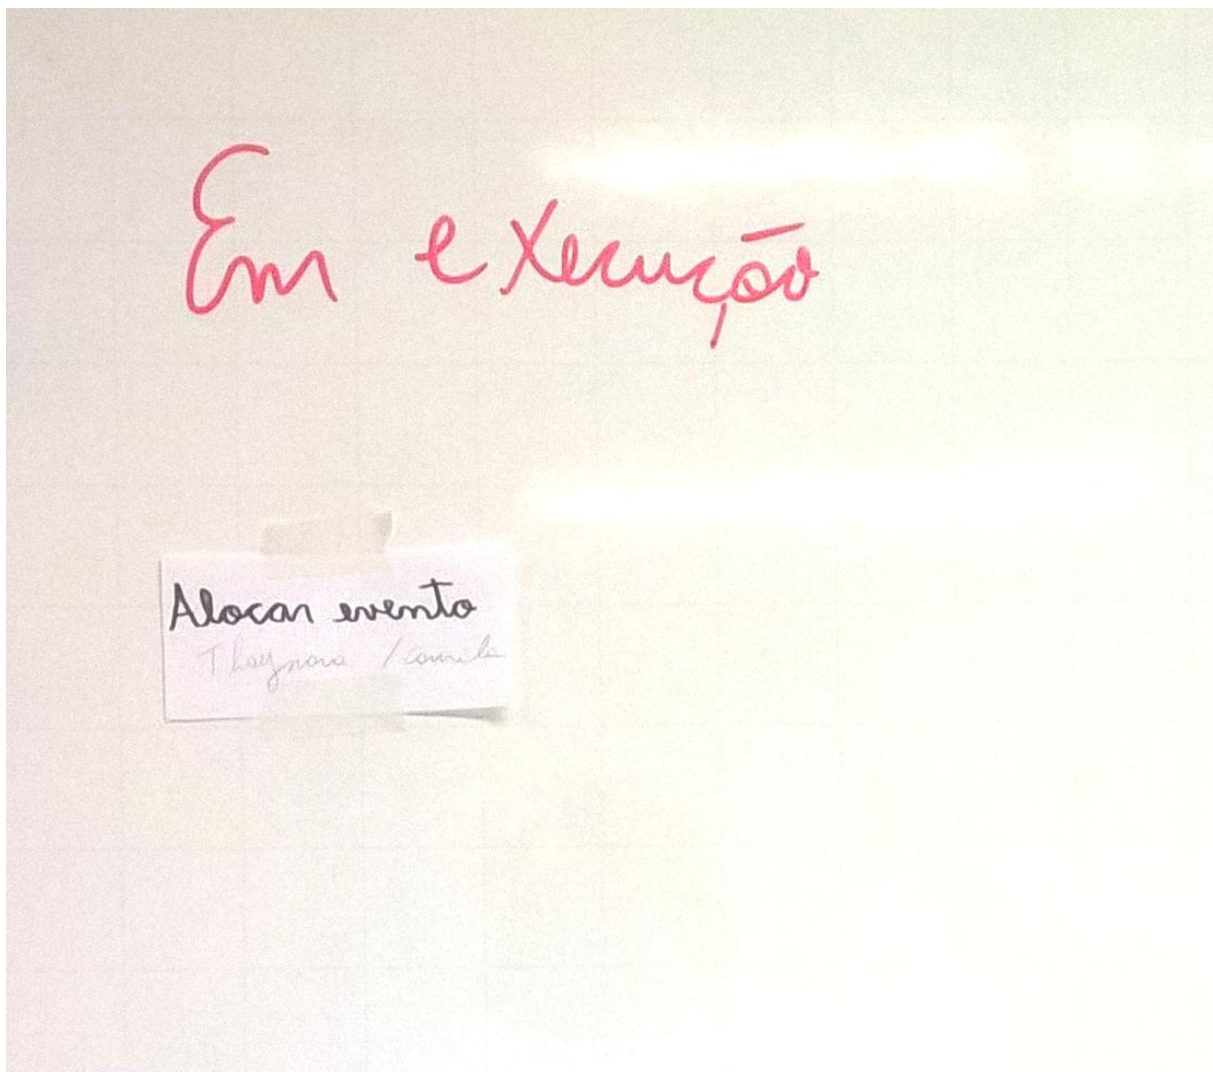 Em execução
Alocar evento
Thaynara / Camila